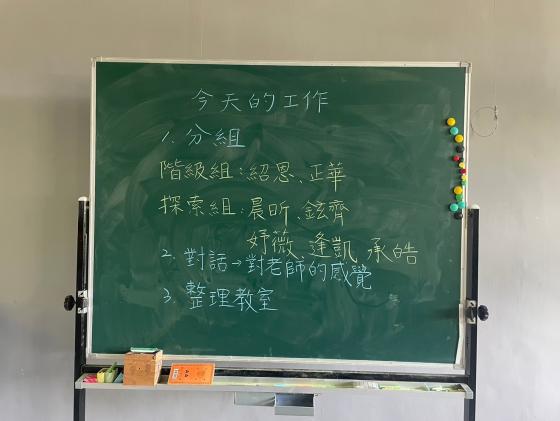 今天的工作
1. 分組
階級組：紹恩、正華
探索組：晨昕、鉉齊
妤薇、逢凱 承皓
2. 對話→對老師的感覺
3. 整理教室